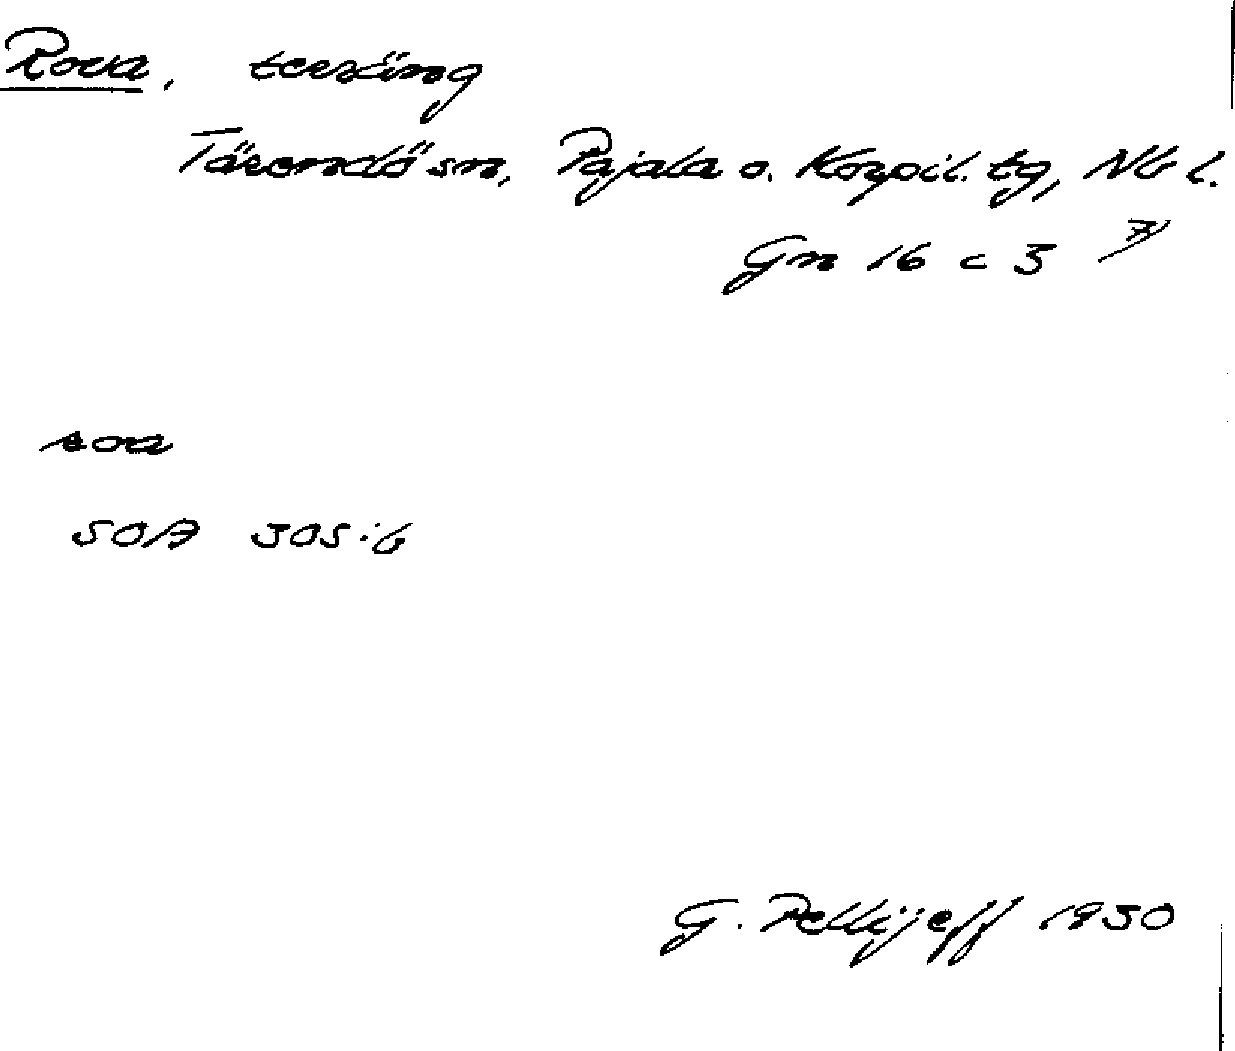 Rova, terräng
Tärendö sn, Pajala o. Korpil. tg, Nb l.
Gn 16 c 3 7)
rova
SOA 305:6
G. Pellijeff 1950